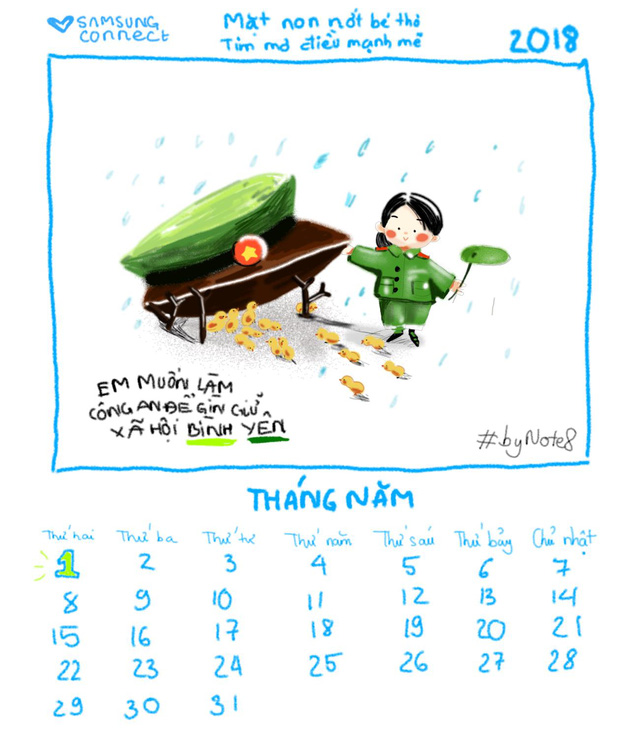 SAMSUNG
connect
Mặt non nớt bé thơ
Tim mơ điều mạnh mẽ
2018
EM MUỐN LÀM
CÔNG AN ĐỂ GÌN GIỮ
XÃ HỘI BÌNH YÊN
#byNote8
THÁNG NĂM
Thứ hai Thứ ba Thứ tư Thứ năm Thứ sáu Thứ bảy Chủ nhật
1 2 3 4 5 6 7
8 9 10 11 12 13 14
15 16 17 18 19 20 21
22 23 24 25 26 27 28
29 30 31